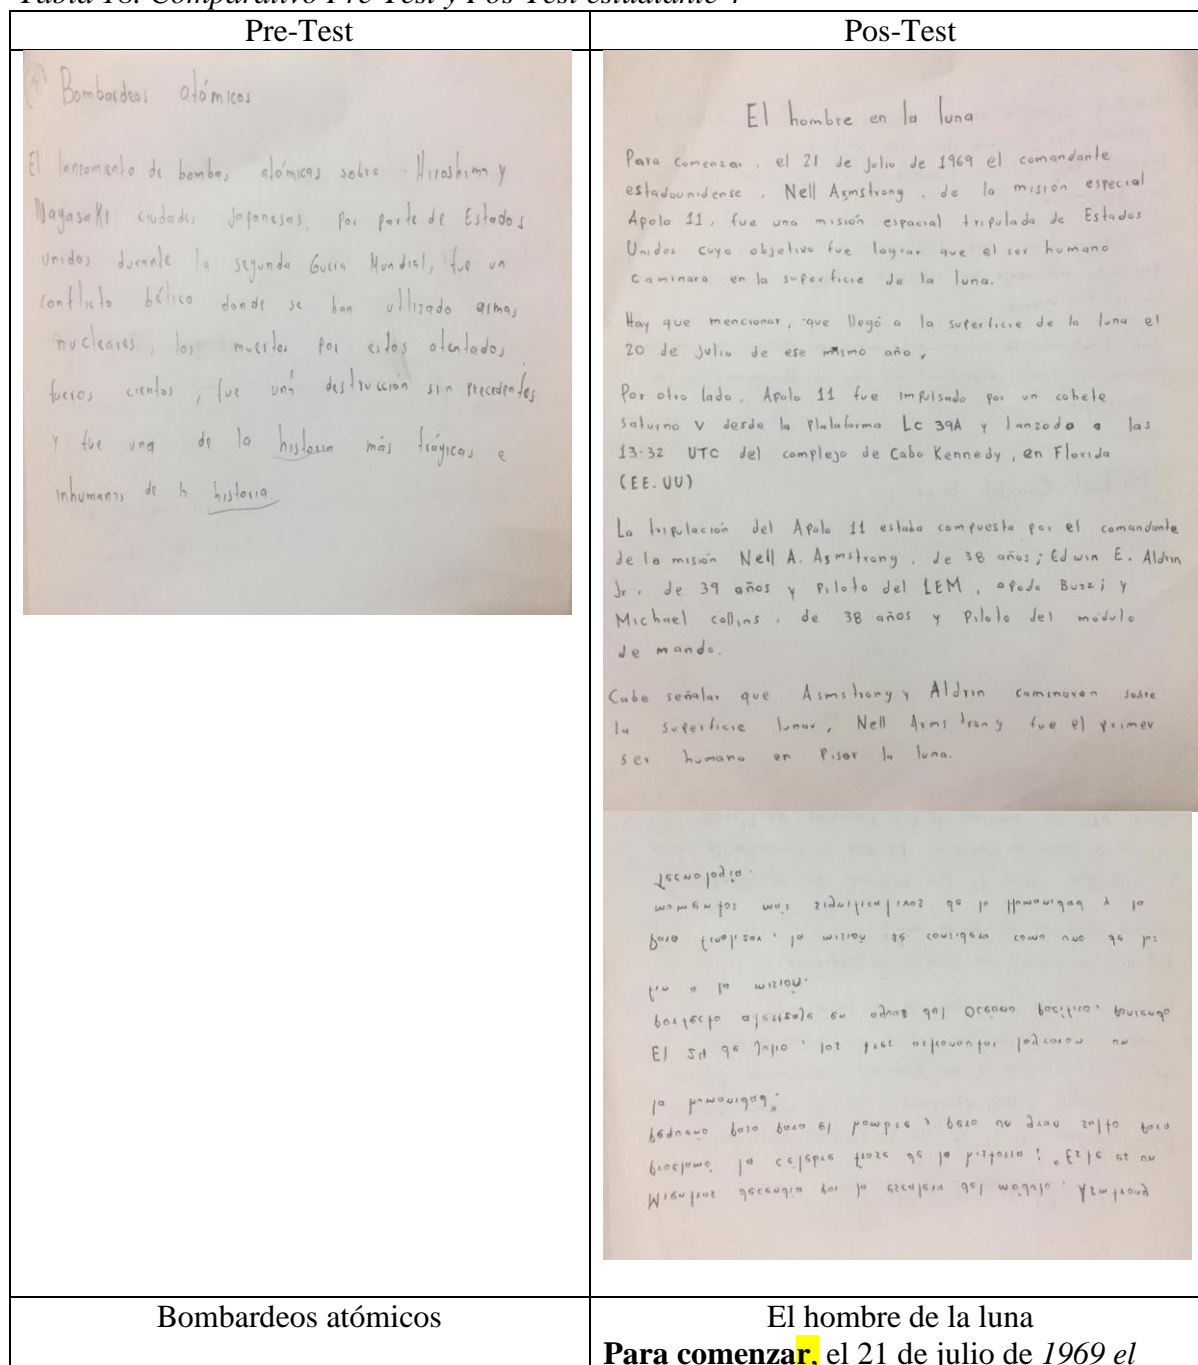 Tabla 18. Comparativo Pre-Test y Pos-Test estudiante 4
Pre-Test
Bombardeos atómicos
El lanzamiento de bombas atómicas sobre Hiroshima y
Nagasaki ciudades Japonesas, por parte de Estados
Unidos durante la segunda Guerra Mundial, fue un
conflicto bélico donde se han utilizado armas
nucleares, los muertos por estos atentados
fueros cientos, fue una destrucción sin precedentes
y fue una de la historia más trágicas e
inhumanas de la historia.
Pos-Test
El hombre en la luna
Para comenzar, el 21 de Julio de 1969 el comandante
estadounidense, Nell Asmstrong, de la misión especial
Apolo 11, fue una misión espacial tripulada de Estados
Unidos cuyo objetivo fue lograr que el ser humano
caminara en la superficie de la luna.
Hay que mencionar, que llegó a la superficie de la luna el
20 de Julio de ese mismo año,
Por otro lado, Apolo 11 fue impulsado por un cohete
saturno V desde la Plataforma Lc 39A y lanzado a las
13:32 UTC del complejo de Cabo Kennedy, en Florida
(EE.UU)
La tripulación del Apolo 11 estaba compuesta por el comandante
de la misión Nell A. Asmstrong, de 38 años; Edwin E. Aldrin
Jr, de 39 años y Piloto del LEM, apodo Buzz; y
Michael collins, de 38 años y Piloto del módulo
de mando.
Cabe señalar que Asmstrong y Aldrin caminaron sobre
la superficie lunar, Nell Armstrong fue el primer
ser humano en Pisar la luna.
Mientras descendia por la escalera del módulo, Asmtrong
proclamó la celebre frase de la historia: "Este es un
pequeño paso para el hombre, pero un gran salto para
la humanidad".
El 24 de Julio, los tres astronautas lograron un
perfecto aterrizaje en aguas del Océano pacífico, poniendo
fin a la misión.
Para finalizar, la misión se considera como uno de
momentos más significativos de la Humanidad y la
Tecnología.
Bombardeos atómicos
El hombre de la luna
Para comenzar, el 21 de julio de 1969 el